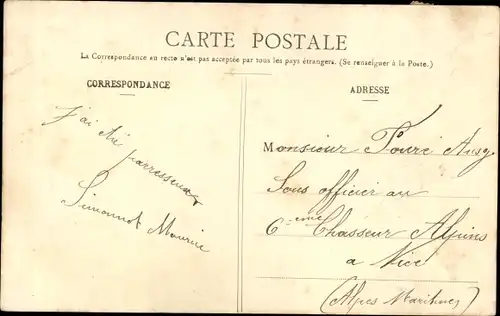 CARTE POSTALE
La Correspondance au recto n'est pas acceptée par tous les pays étrangers. (Se renseigner à la Poste.)
CORRESPONDANCE
J'ai été parresseux
Simonnot Maurice
ADRESSE
Monsieur
Sous officier au
6ème Chasseur Alpins
a Nice
(Alpes Maritimes)